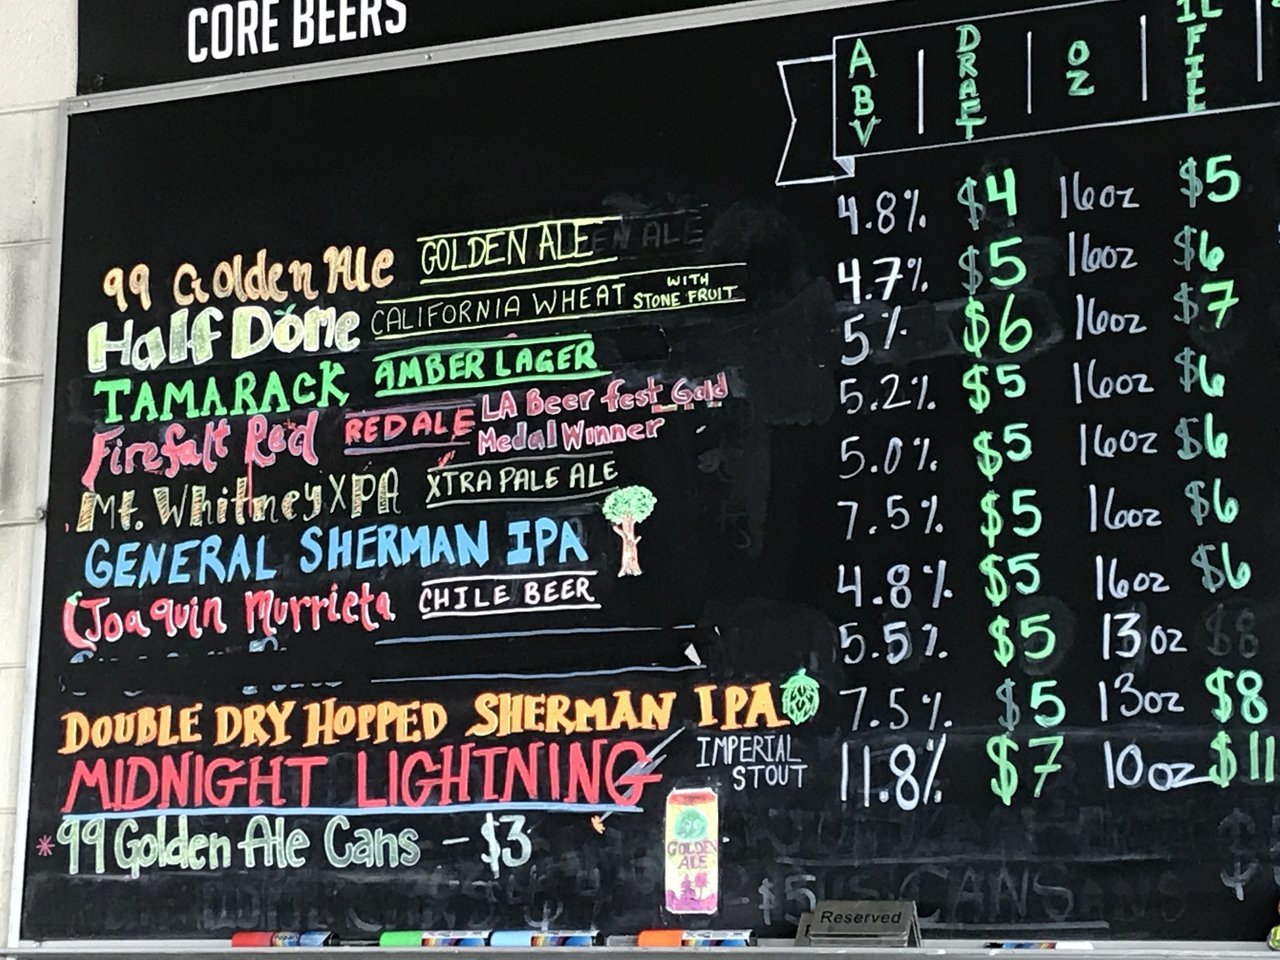 CORE BEERS
ABV | DRAFT | OZ | 1L FILL
99 Golden Ale GOLDEN ALE 4.8% $4 16oz $5
Half Dome CALIFORNIA WHEAT WITH STONE FRUIT 4.7% $5 16oz $6
TAMARACK AMBER LAGER 5% $6 16oz $7
Firefalt Red RED ALE LA Beer fest Gold Medal Winner 5.2% $5 16oz $6
Mt. Whitney XPA XTRA PALE ALE 5.0% $5 16oz $6
GENERAL SHERMAN IPA 7.5% $5 16oz $6
Joaquin Murrieta CHILE BEER 4.8% $5 16oz $6
5.5% $5 13oz $8
DOUBLE DRY HOPPED SHERMAN IPA 7.5% $5 13oz $8
MIDNIGHT LIGHTNING IMPERIAL STOUT 11.8% $7 10oz $11
*99 Golden Ale Cans - $3
99 GOLDEN ALE
$5 CANS
Reserved